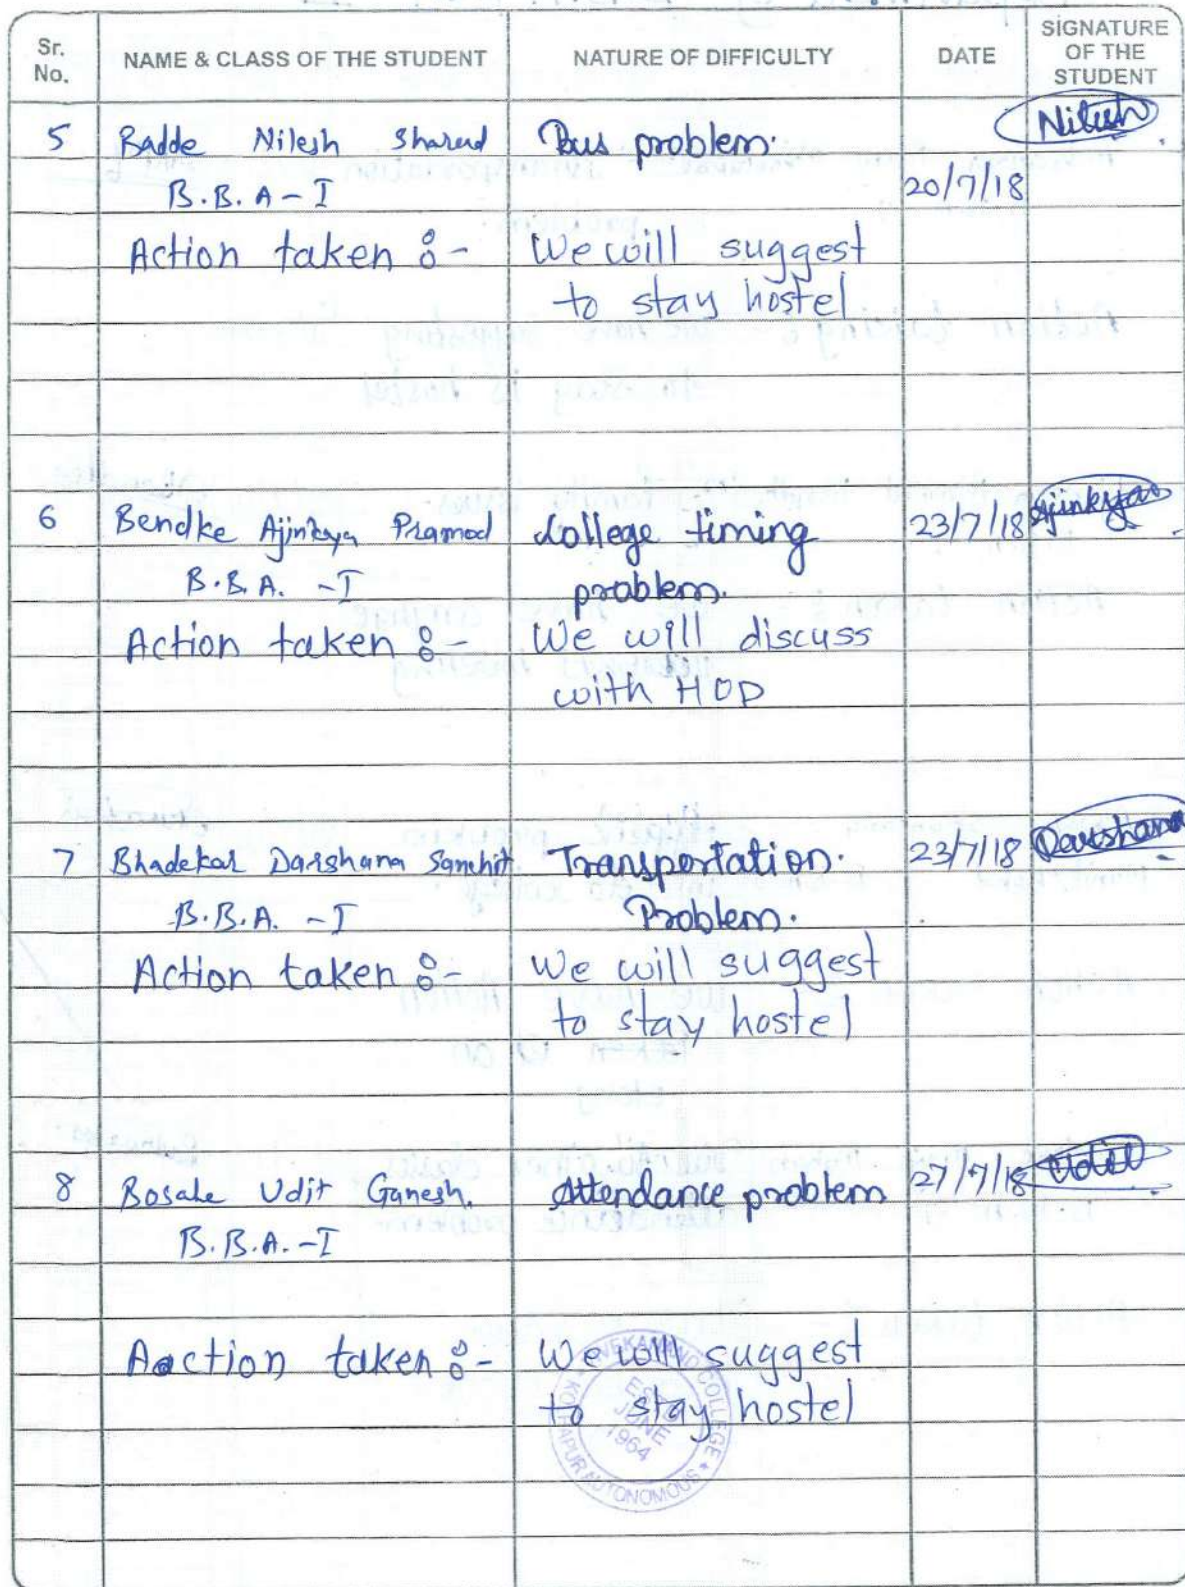 Sr. No. NAME & CLASS OF THE STUDENT NATURE OF DIFFICULTY DATE SIGNATURE OF THE STUDENT
5 Badde Nilesh Sharad Bus problem. Nilesh
B.B.A - I 20/7/18
Action taken :- We will suggest
to stay hostel
6 Bendke Ajinkya Pramod College timing 23/7/18 Ajinkya
B.B.A. - I problem.
Action taken :- We will discuss
with HOD
7 Bhadekar Darshana Sanchit Transportation. 23/7/18 Darshana
B.B.A. - I Problem.
Action taken :- We will suggest
to stay hostel
8 Bosale Udit Ganesh. Attendance problem 27/7/18 Udit
B.B.A. - I
Aaction taken :- We will suggest
to stay hostel
VIVEKANAND COLLEGE KOLHAPUR AUTONOMOUS
ESTD
JUNE
1964